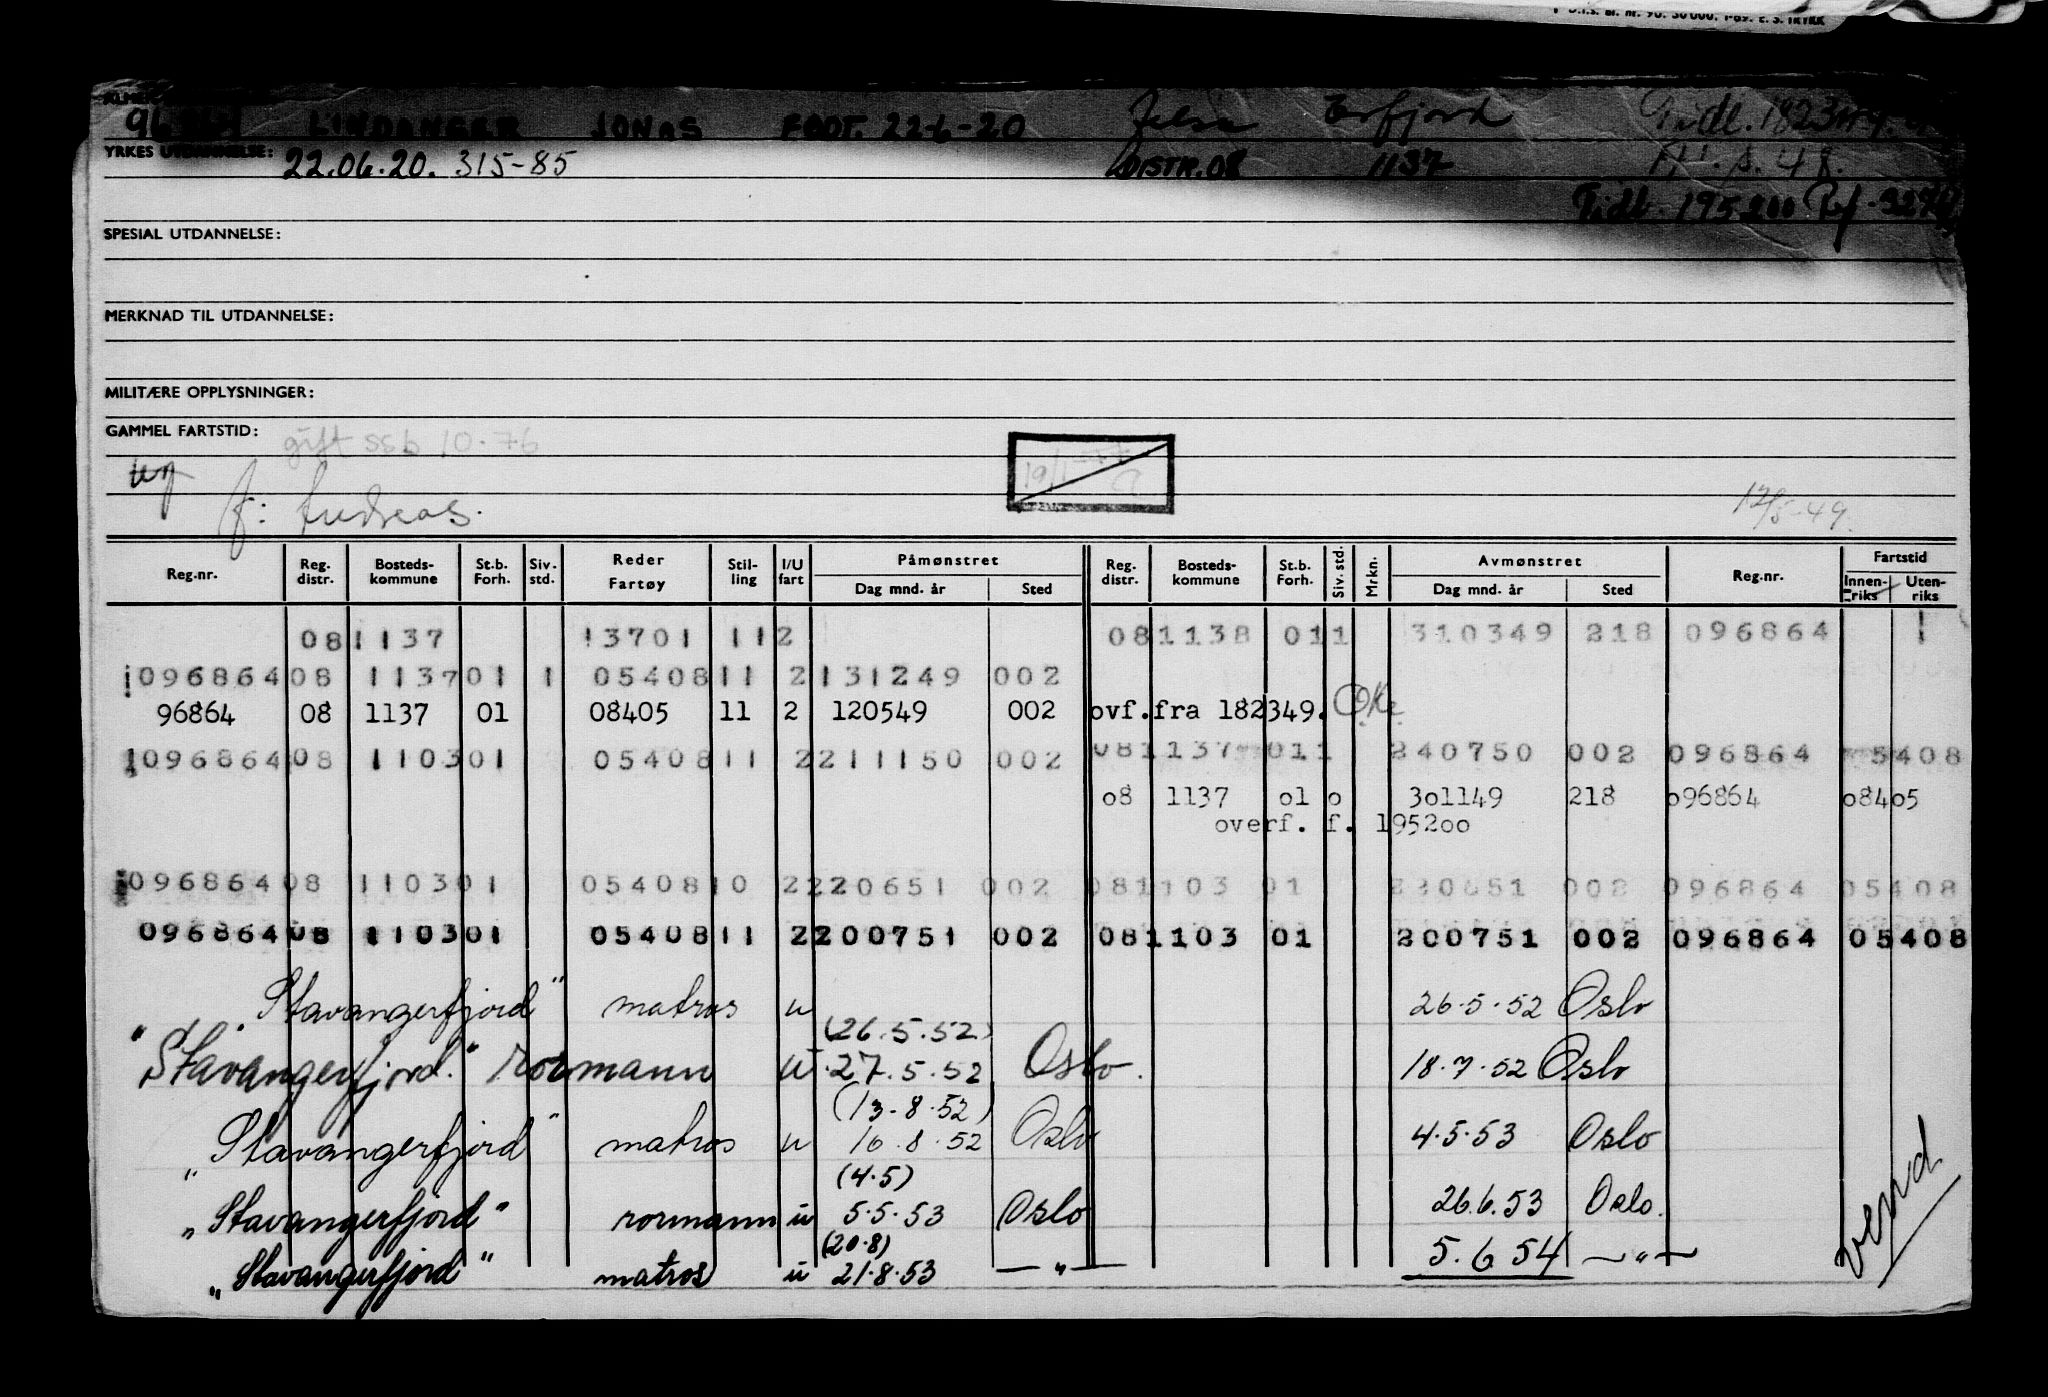 LINDANGER JONAS FØDT. 22-6-20 Jelsa Erfjord
YRKES UTDANNELSE: 22.06.20. 315-85 DISTR.08 1137
Tidl. 195200
SPESIAL UTDANNELSE:
MERKNAD TIL UTDANNELSE:
MILITÆRE OPPLYSNINGER:
GAMMEL FARTSTID: gift ssb 10.76
f: Andreas. 12/5-49.
Reg.nr. Reg. distr. Bosteds-kommune St.b. Forh. Siv. std. Reder Fartøy Stil-ling I/U fart Påmønstret Dag mnd. år Sted Reg. distr. Bosteds-kommune St.b. Forh. Siv. std. Mrkn. Avmønstret Dag mnd. år Sted Reg.nr. Fartstid Innen-riks Uten-riks
08 1137 13701 11 2 08 1138 01 1 310349 218 096864
096864 08 1137 01 1 05408 11 2 131249 002
96864 08 1137 01 08405 11 2 120549 002 ovf.fra 182349. O.K.
096864 08 1103 01 05408 11 2 211150 002 08 1137 01 1 240750 002 096864 5408
o8 1137 o1 o 3o1149 218 o96864 o84o5
overf. f. 1952oo
096864 08 1103 01 05408 10 2 220651 002 08 1103 01 220651 002 096864 05408
096864 08 1103 01 05408 11 2 200751 002 08 1103 01 200751 002 096864 05408
"Stavangerfjord" matros u 26.5.52 Oslo
(26.5.52)
"Stavangerfjord." rormann u 27.5.52 Oslo. 18.7.52 Oslo
(13-8.52)
"Stavangerfjord" matros u 16.8.52 Oslo 4.5.53 Oslo
(4.5)
"Stavangerfjord" rormann u 5.5.53 Oslo 26.6.53 Oslo.
(20.8)
"Stavangerfjord" matros u 21.8.53 —"— 5.6 54 —"—
vend